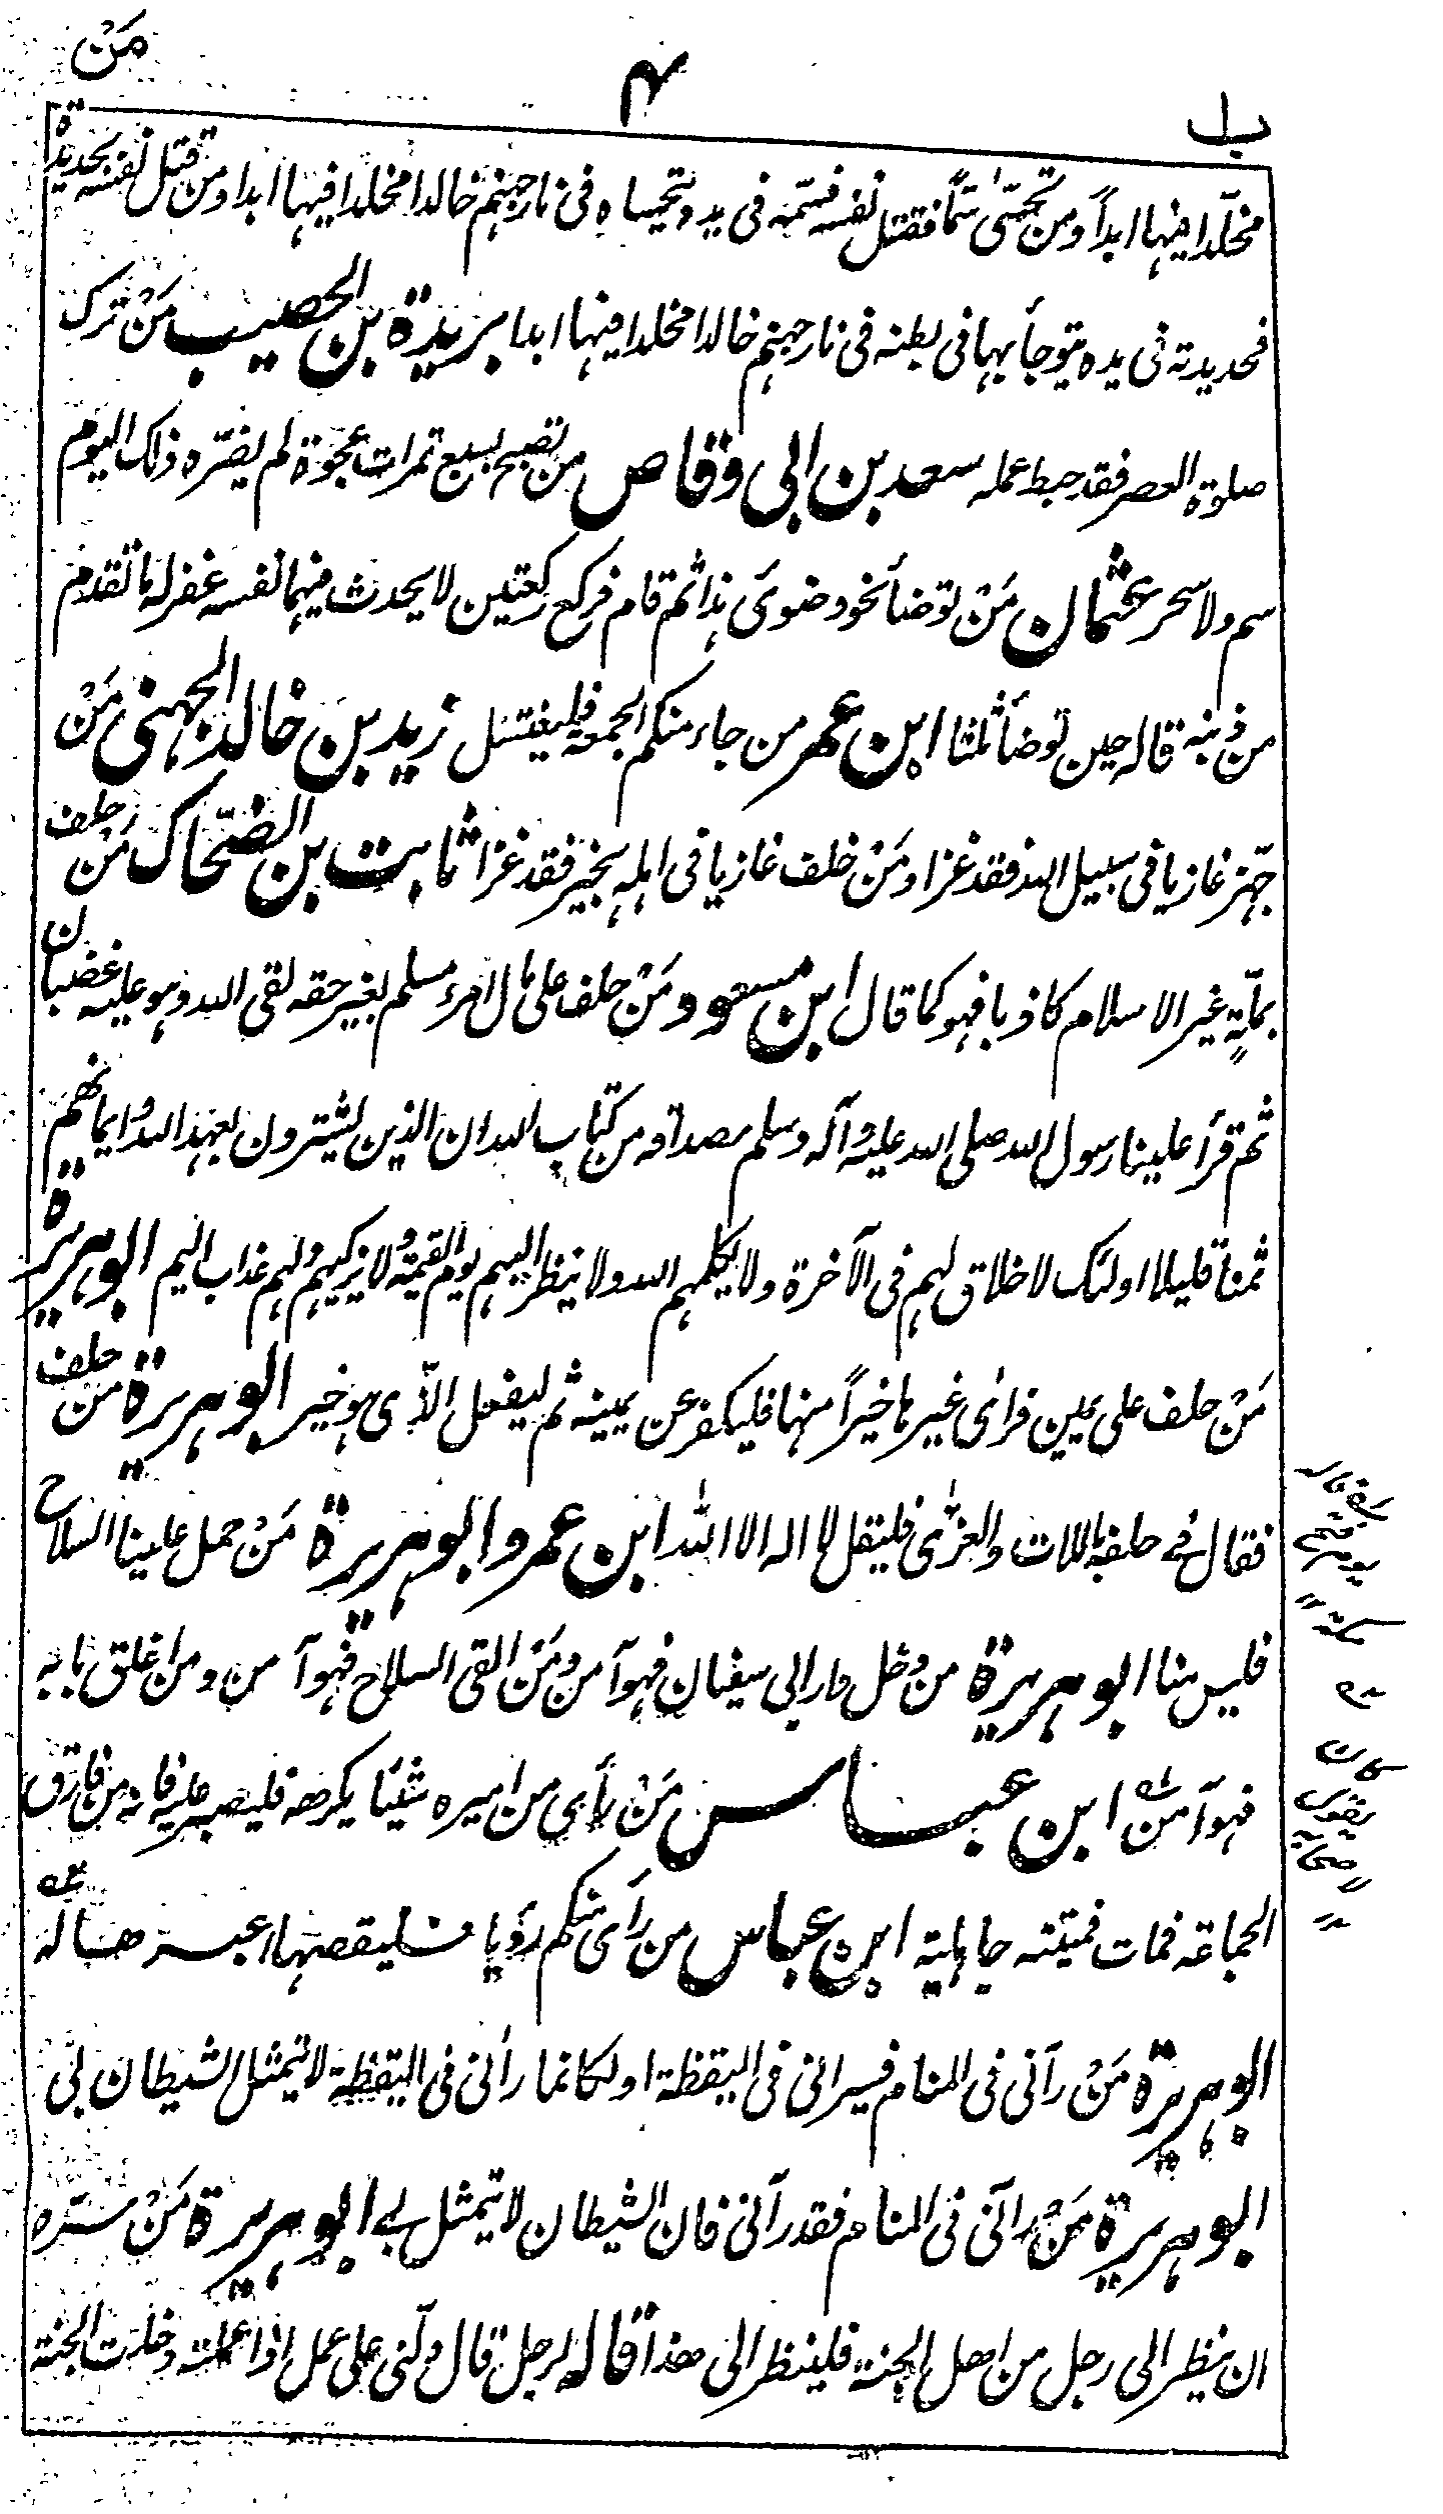 من
٣
ب
مخلّدا فيها ابداً ومن تحسّى سمّا فقتل نفسه فسمّه فى يده يتحساه فى نار جهنم خالدا مخلدا فيها ابدا ومن قتل نفسه بحديدة
فحديدته فى يده يتوجأ بها فى بطنه فى نار جهنم خالدا مخلدا فيها ابدا بريدة بن الحصيب مَنْ ترك
صلوة العصر فقد حبط عمله سعد بن ابى وقاص من تصبح بسبع تمرات عجوة لم يضرّه ذلك اليوم
سم ولا سحر عثمان مَنْ توضأ نحو وضوئى هذا ثم قام فركع ركعتين لا يحدث فيهما نفسه غفر له ما تقدم
من ذنبه قاله حين توضأ ثلثا ابن عمر من جاء منكم الجمعة فليغتسل زيد بن خالد الجهنى مَنْ
جهّز غازيا فى سبيل الله فقد غزا ومَنْ خلف غازيا فى اهله بخير فقد غزا ثابت بن الضحّاك مَنْ حلف
بملّةٍ غير الاسلام كاذبا فهو كما قال ابن مسعود مَنْ حلف على مال امرء مسلم بغير حقه لقى الله وهو عليه غضبان
ثم قرأ علينا رسول الله صلى الله عليه وآله وسلم مصداقه من كتاب الله ان الذين يشترون بعهد الله وايمانهم
ثمنا قليلا اولئك لا خلاق لهم فى الآخرة ولا يكلمهم الله ولا ينظر اليهم يوم القيمة ولا يزكيهم ولهم عذاب اليم ابو هريرة
مَنْ حلف على يمين فرأى غيرها خيراً منها فليكفر عن يمينه ثم ليفعل الذى هو خير ابو هريرة من حلف
فقال فى حلفه باللات والعزّى فليقل لا اله الا الله ابن عمر وابو هريرة مَنْ حمل علينا السلاح
فليس منا ابو هريرة من دخل دار ابى سفيان فهو آمن ومَنْ القى السلاح فهو آمن ومن اغلق بابه
فهو آمن ابن عباس مَنْ رأى من اميره شيئا يكرهه فليصبر عليه فانه من فارق
الجماعة فمات فميتته جاهلية ابن عباس من رأى منكم رؤيا فليقصها اعبرها له
ابو هريرة مَنْ رآنى فى المنام فسيرانى فى اليقظة او لكانما رآنى فى اليقظة لا يتمثل الشيطان بى
ابو هريرة مَنْ رآنى فى المنام فقد رآنى فان الشيطان لا يتمثل بى ابو هريرة مَنْ سرّه
ان ينظر الى رجل من اهل الجنة فلينظر الى هذا قاله لرجل قال دلّنى على عمل اذا عملته دخلت الجنة